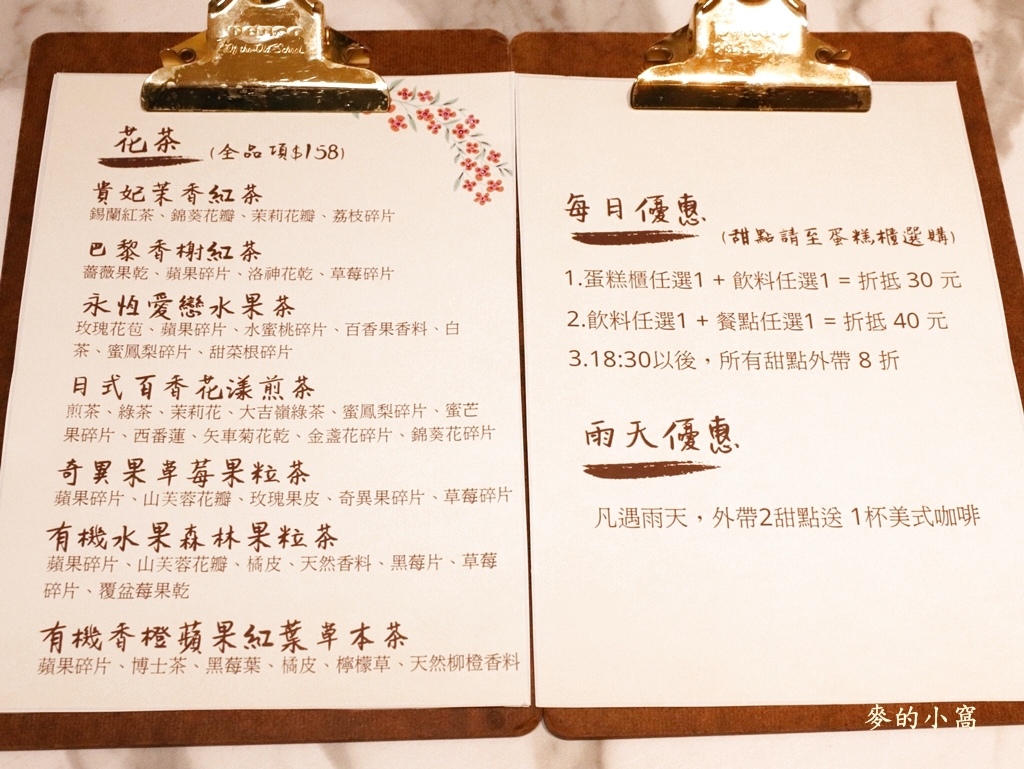 花茶 (全品項$158)
貴妃茉香紅茶
錫蘭紅茶、錦葵花瓣、茉莉花瓣、荔枝碎片
巴黎香榭紅茶
薔薇果乾、蘋果碎片、洛神花乾、草莓碎片
永恆愛戀水果茶
玫瑰花苞、蘋果碎片、水蜜桃碎片、百香果香料、白
茶、蜜鳳梨碎片、甜菜根碎片
日式百香花漾煎茶
煎茶、綠茶、茉莉花、大吉嶺綠茶、蜜鳳梨碎片、蜜芒
果碎片、西番蓮、矢車菊花乾、金盞花碎片、錦葵花碎片
奇異果草莓果粒茶
蘋果碎片、山芙蓉花瓣、玫瑰果皮、奇異果碎片、草莓碎片
有機水果森林果粒茶
蘋果碎片、山芙蓉花瓣、橘皮、天然香料、黑莓片、草莓
碎片、覆盆莓果乾
有機香橙蘋果紅葉草本茶
蘋果碎片、博士茶、黑莓葉、橘皮、檸檬草、天然柳橙香料
每日優惠
(甜點請至蛋糕櫃選購)
1.蛋糕櫃任選1 + 飲料任選1 = 折抵 30 元
2.飲料任選1 + 餐點任選1 = 折抵 40 元
3.18:30以後，所有甜點外帶 8 折
雨天優惠
凡遇雨天，外帶2甜點送 1杯美式咖啡
麥的小窩